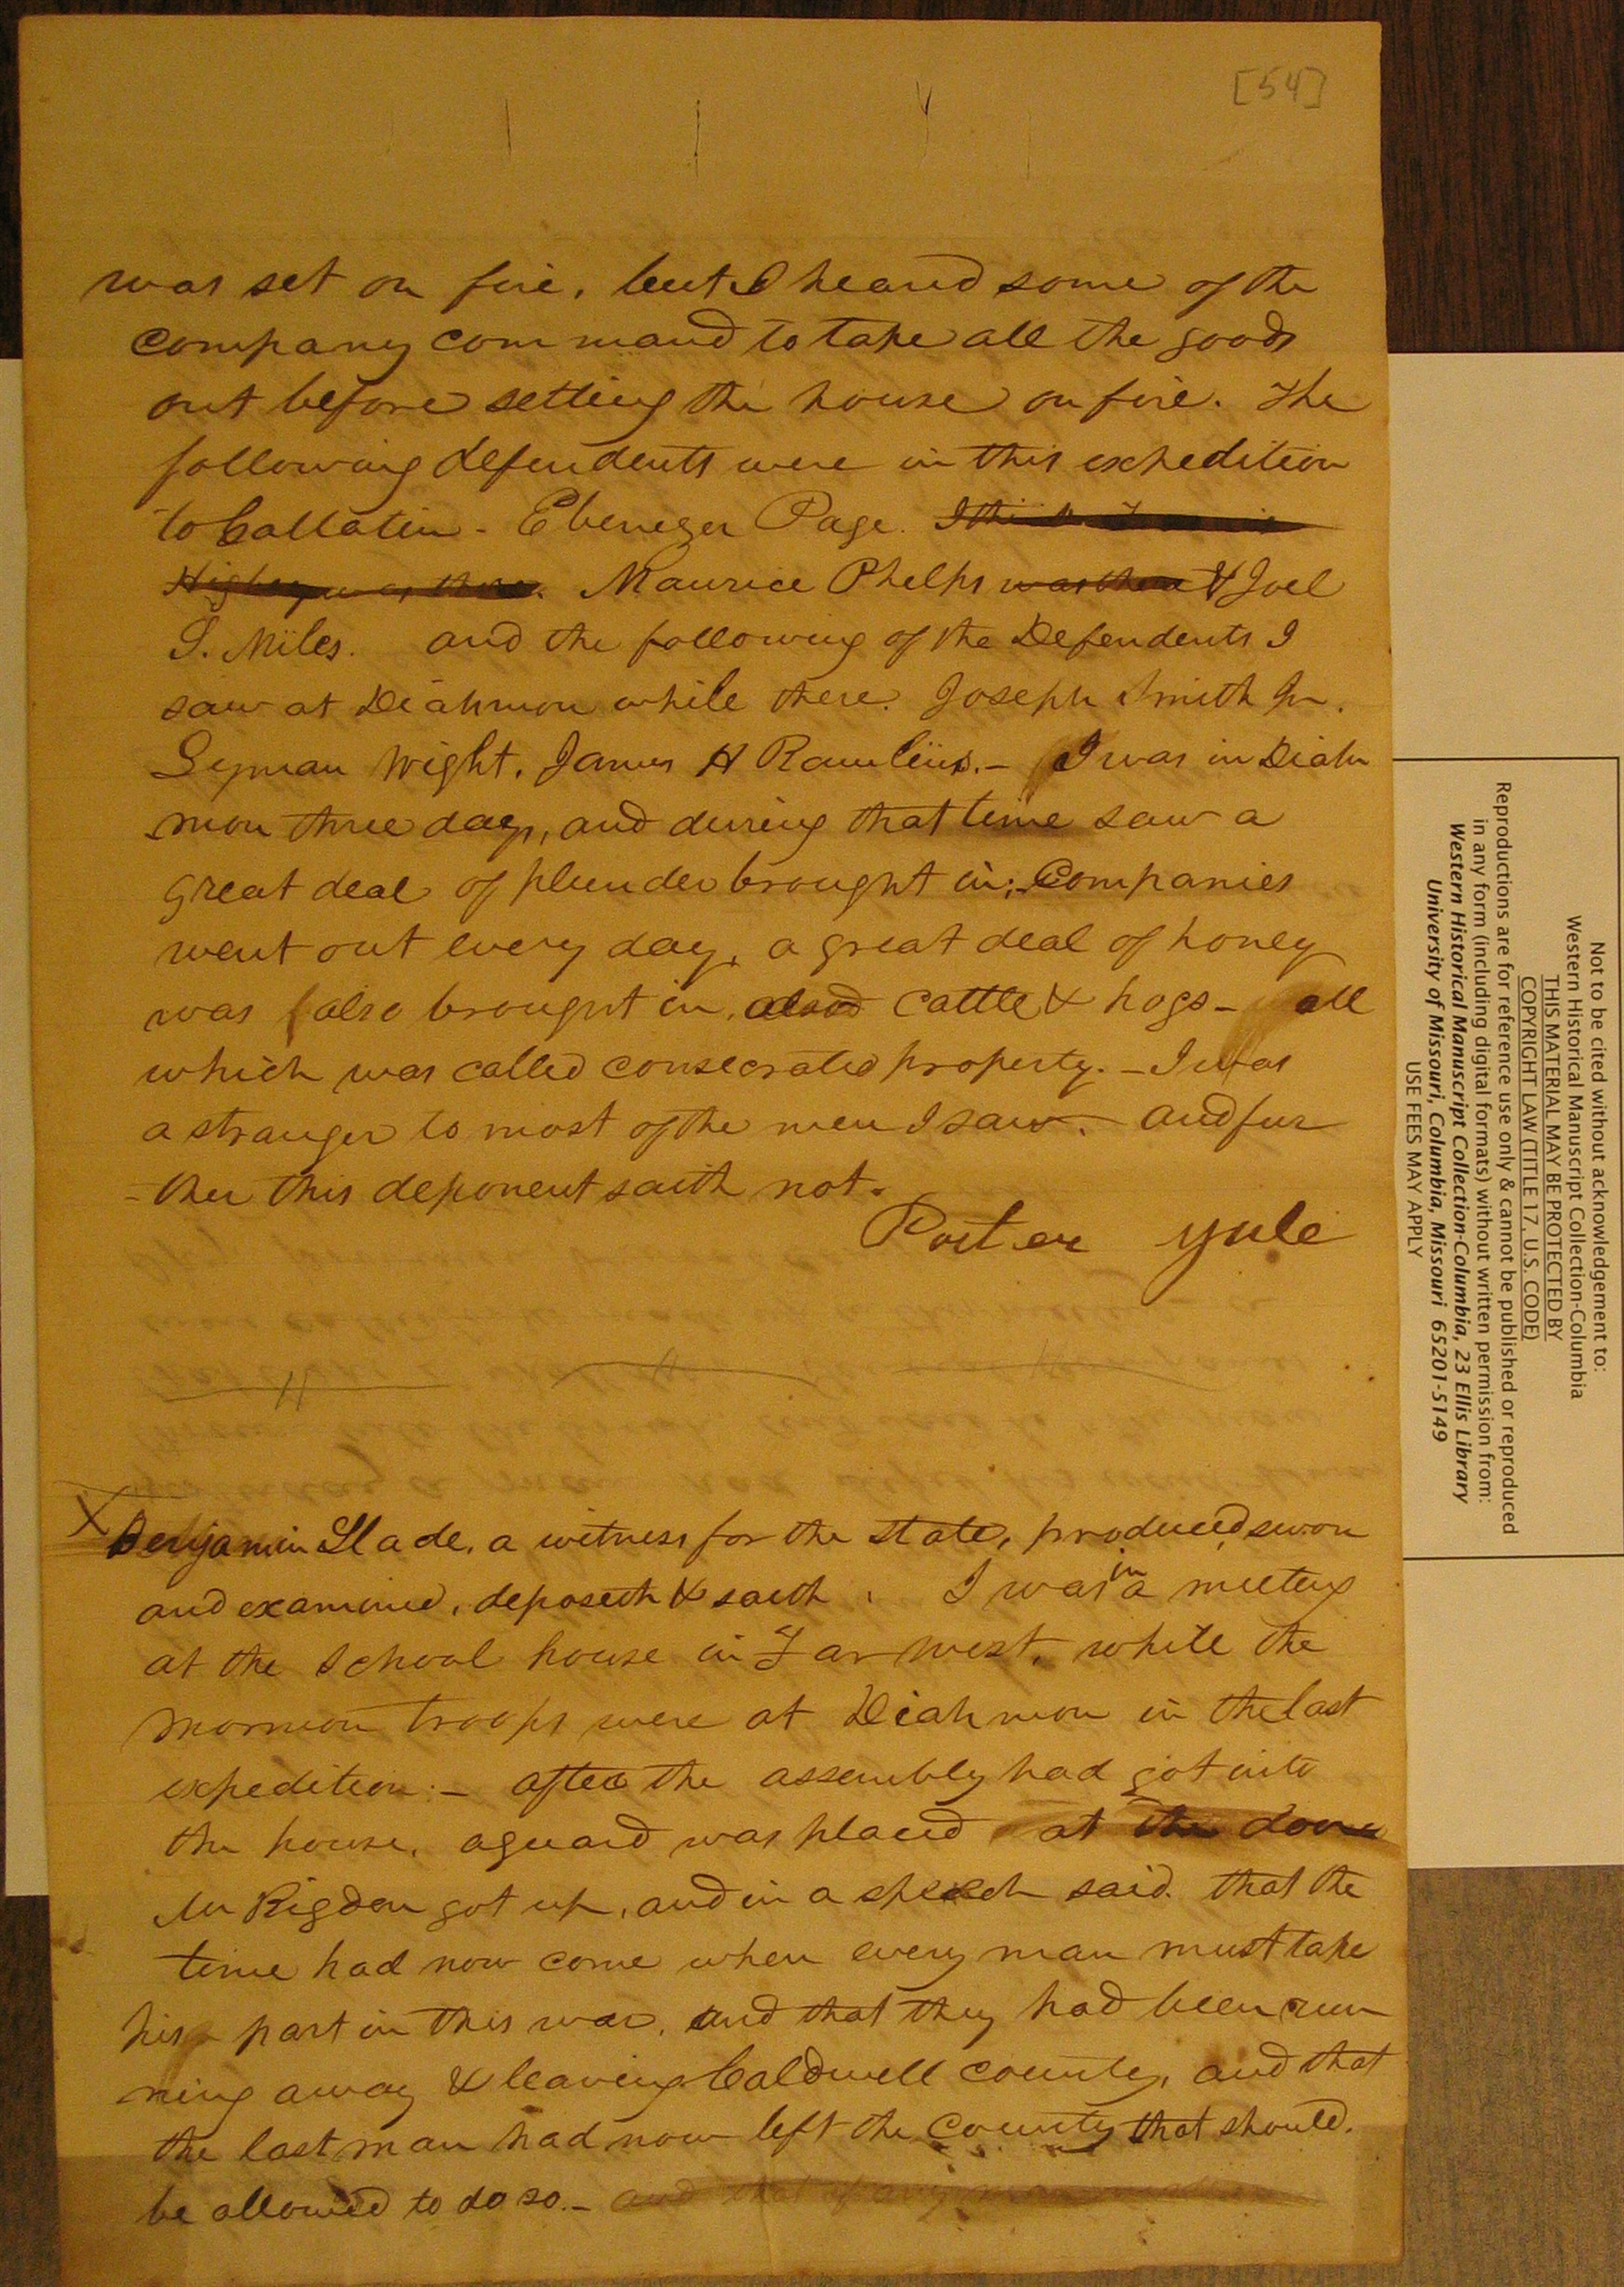 [54]
was set on fire, but I heard some of the
company command to take all the goods
out before setting the house on fire. The
following defendents were in this expedition
to Gallatin - Ebenezer Page. I think
Higbey was there. Maurice Phelps was there & Joel
S. Miles. and the following of the Defendents I
saw at Diahmon while there. Joseph Smith Jr.
Lyman Wight, James H Rawlins. - I was in Diah
mon three days, and during that time saw a
great deal of plunder brought in; - Companies
went out every day, a great deal of honey
was also brought in, cattle & hogs - all
which was called consecrated property. - I was
a stranger to most of the men I saw. - and fur
- ther this deponent saith not.
Porter Yule
X Benjamin Slade, a witness for the state, produced, sworn
and examined, deposeth & saith. I was in a meeting
at the School house in Far West, while the
mormon troops were at Diahmon in the last
expedition: - after the assembly had got into
the house, a guard was placed at the door
Mr Rigdon got up, and in a speech said. that the
time had now come when every man must take
his part in this war, and that they had been run
ning away & leaving Caldwell county, and that
the last man had now left the County that should.
be allowed to do so. - and that if any man
Not to be cited without acknowledgement to:
Western Historical Manuscript Collection-Columbia
THIS MATERIAL MAY BE PROTECTED BY
COPYRIGHT LAW (TITLE 17, U.S. CODE)
Reproductions are for reference use only & cannot be published or reproduced
in any form (including digital formats) without written permission from:
Western Historical Manuscript Collection-Columbia, 23 Ellis Library
University of Missouri, Columbia, Missouri 65201-5149
USE FEES MAY APPLY